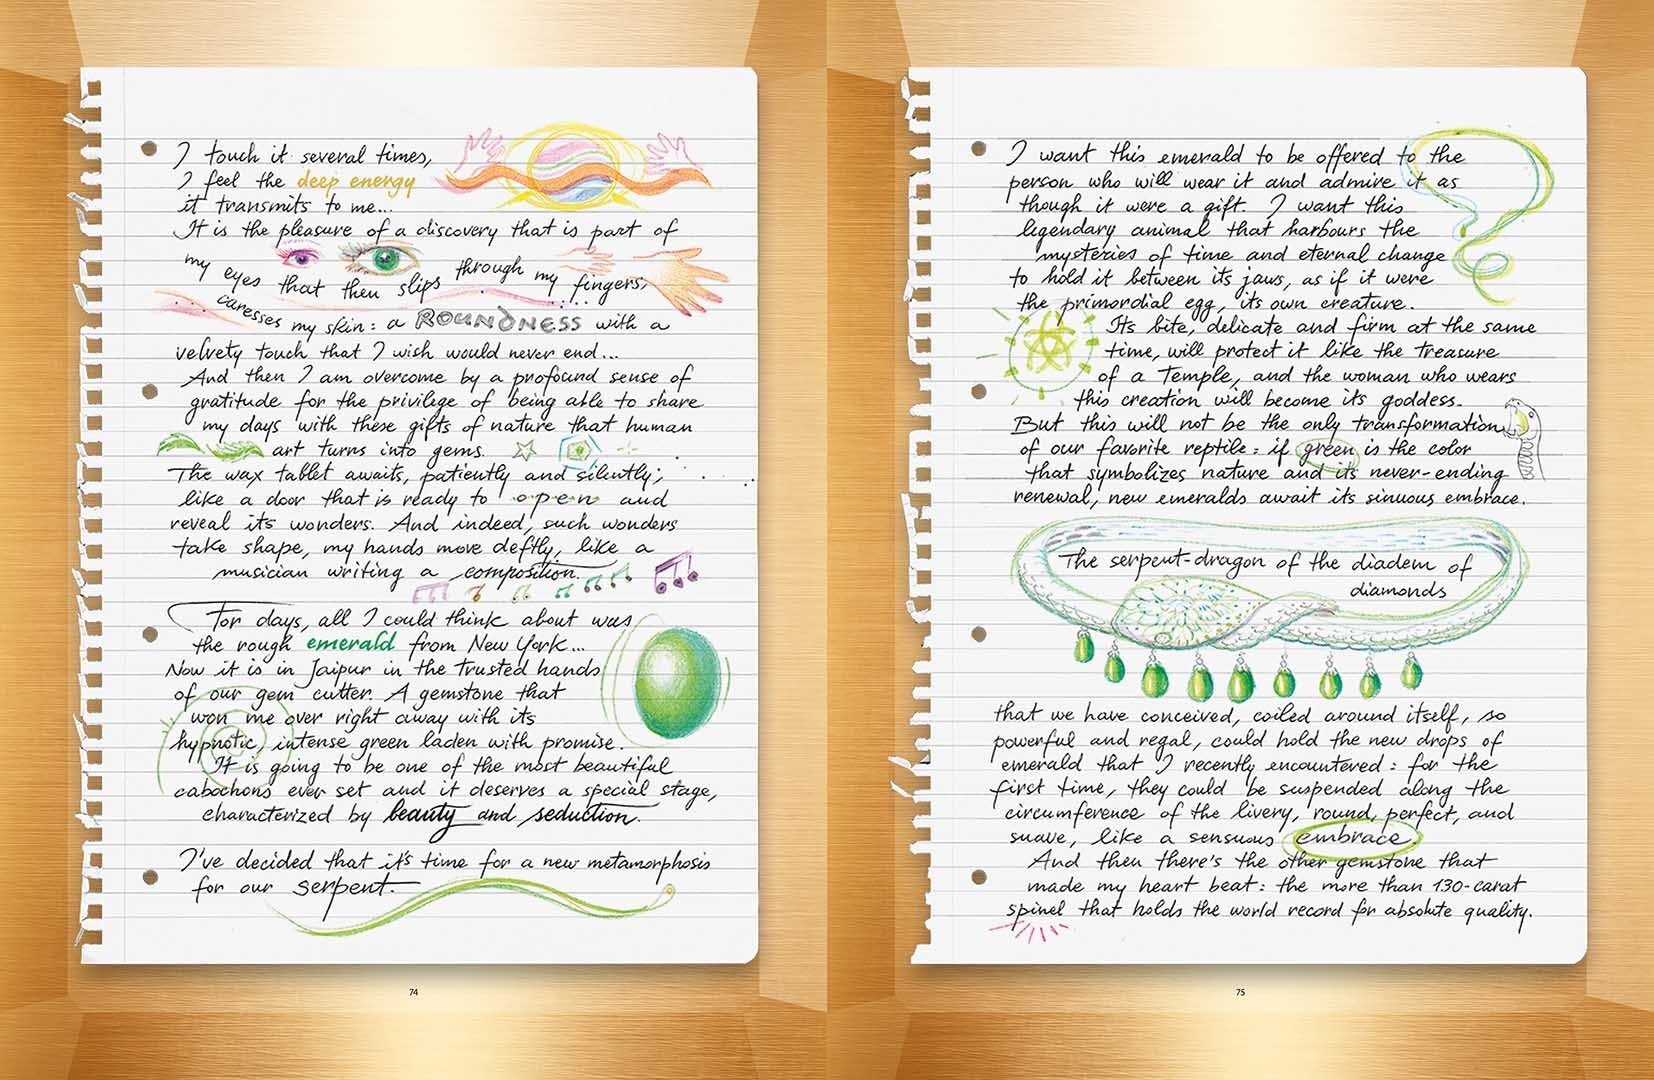 I touch it several times,
I feel the deep energy
it transmits to me...
It is the pleasure of a discovery that is part of
my eyes that then slips through my fingers,
caresses my skin: a ROUNDNESS with a
velvety touch that I wish would never end...
And then I am overcome by a profound sense of
gratitude for the privilege of being able to share
my days with these gifts of nature that human
art turns into gems.
The wax tablet awaits, patiently and silently;
like a door that is ready to open and
reveal its wonders. And indeed, such wonders
take shape, my hands move deftly, like a
musician writing a composition.
For days, all I could think about was
the rough emerald from New York...
Now it is in Jaipur in the trusted hands
of our gem cutter. A gemstone that
won me over right away with its
hypnotic, intense green laden with promise.
It is going to be one of the most beautiful
cabochons ever set and it deserves a special stage,
characterized by beauty and seduction.
I've decided that it's time for a new metamorphosis
for our serpent.
74
I want this emerald to be offered to the
person who will wear it and admire it as
though it were a gift. I want this
legendary animal that harbours the
mysteries of time and eternal change
to hold it between its jaws, as if it were
the primordial egg, its own creature.
Its bite, delicate and firm at the same
time, will protect it like the treasure
of a Temple, and the woman who wears
this creation will become its goddess.
But this will not be the only transformation
of our favorite reptile: if green is the color
that symbolizes nature and its never-ending
renewal, new emeralds await its sinuous embrace.
The serpent-dragon of the diadem of
diamonds
that we have conceived, coiled around itself, so
powerful and regal, could hold the new drops of
emerald that I recently encountered: for the
first time, they could be suspended along the
circumference of the livery, round, perfect, and
suave, like a sensuous embrace.
And then there's the other gemstone that
made my heart beat: the more than 130-carat
spinel that holds the world record for absolute quality.
75